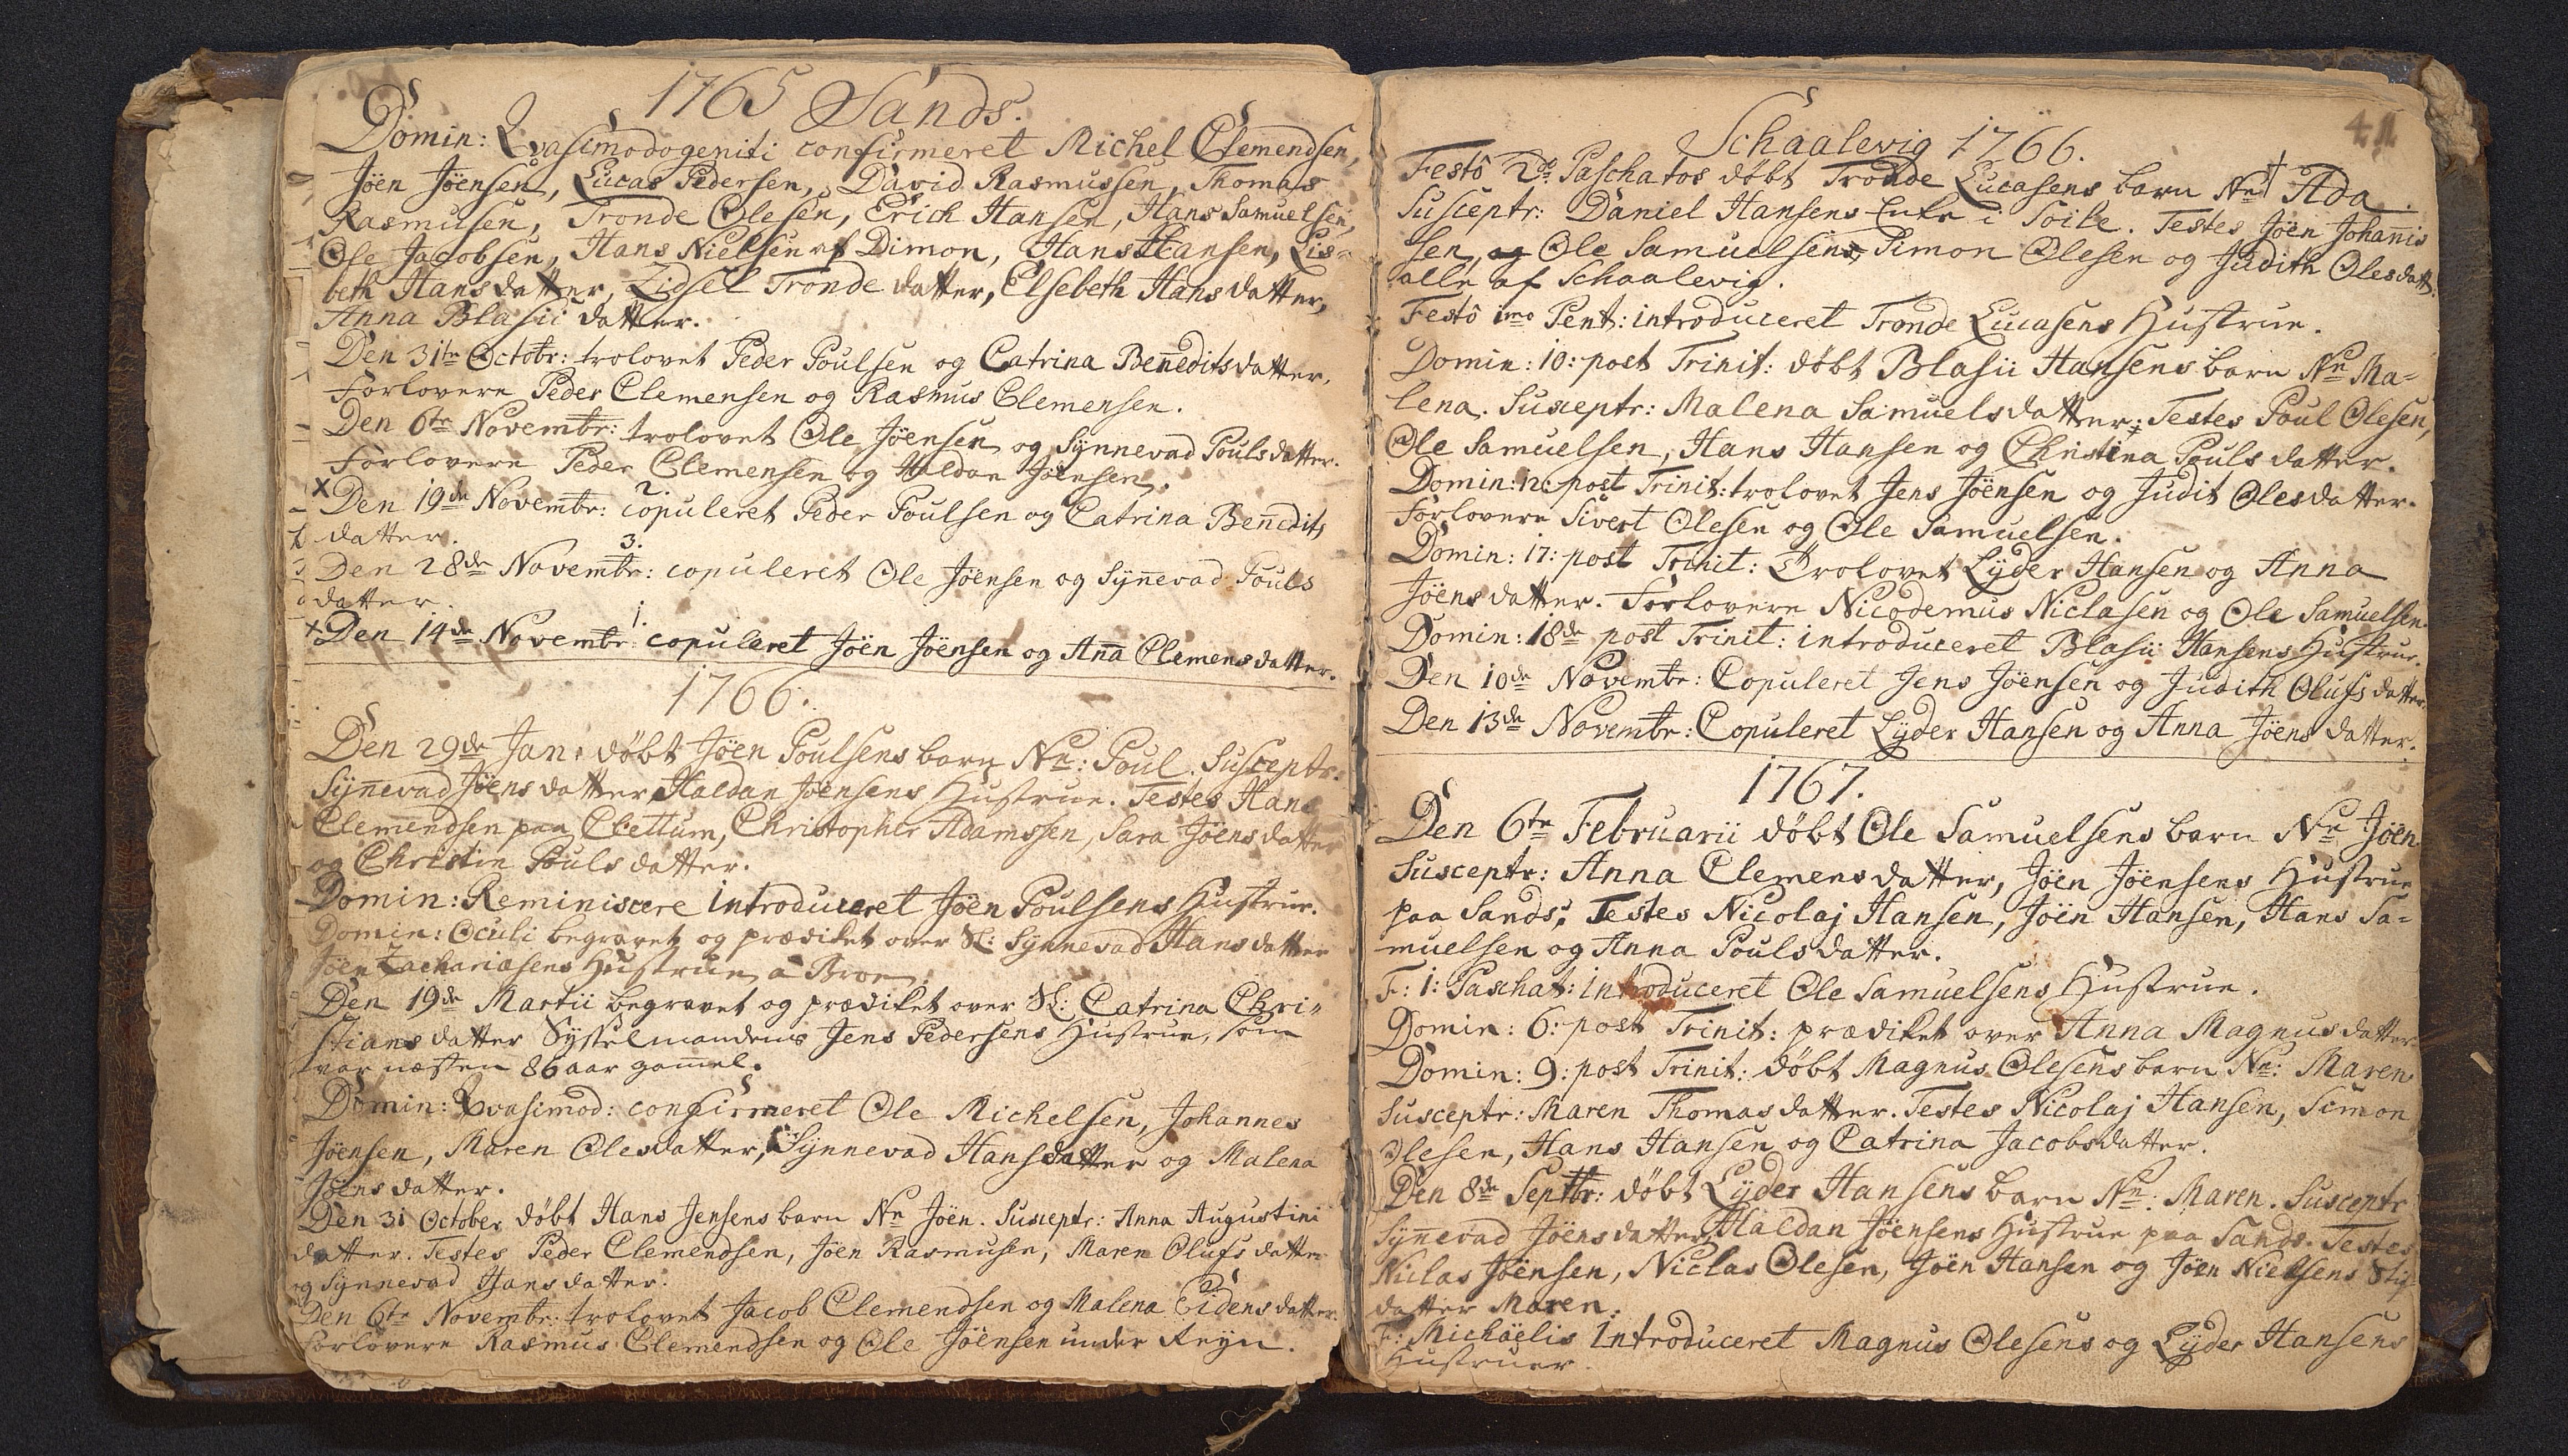 1765 Sands.
Domin: Qvasimodogeniti confirmeret Michel Clemendsen,
Jöen Jöensen, Lucas Pedersen, David Rasmussen, Thomas
Rasmusen, Tronde Olesen, Erich Hansen, Hans Samuelsen,
Ole Jacobsen, Hans Nielsen af Dimon, Hans Hansen, Lis-
beth Hansdatter, Zidsel Tronde datter, Elsebeth Hansdatter,
Anna Blasii datter.
Den 31te Octobr: trolovet Peder Poulsen og Catrina Benneditsdatter.
Forlovere Peder Clemensen og Rasmus Clemensen.
Den 6te Novembr: trolovet Ole Jöensen og Synnevad Poulsdatter.
Forlovere Peder Clemensen og Haldan Jöensen.
2.
x Den 19de Novembr: copuleret Peder Poulsen og Catrina Bennedits
datter.
3.
Den 28de Novembr: copuleret Ole Jöensen og Synnevad Pouls
datter.
1.
x Den 14de Novembr: copuleret Jöen Jöensen og Anna Clemensdatter.
1766.
Den 29de Jan: döbt Jöen Poulsens barn Nn: Poul. Susceptr:
Synnevad Jöensdatter, Haldan Jöensens Hustrue. Testes Hans
Clemendsen paa Clettum, Christopher Adamssen, Sara Jöensdatter
og Christin Pouls datter.
Domin: Reminiscere Introduceret Jöen Poulsens Hustrue.
Domin: Oculi begravet og prædiket over Sl: Synnevad Hansdatter
Jöen Zachariæsens Hustrue a Broe.
Den 19de Martii begravet og prædiket over Sl: Catrina Chri-
stians datter Sysselmandens Jens Pedersens Hustrue, som
var næsten 86 aar gammel.
Domin: Qvasimod: confirmeret Ole Michelsen, Johannes
Jöensen, Maren Olesdatter, Synnevad Hansdatter og Malena
Jöens datter.
Den 31 October döbt Hans Jensens barn Nn Jöen. Susceptr: Anna Augustini
datter. Testes Peder Clemendsen, Jöen Rasmusen, Maren Olufs datter
og Synnevad Hansdatter.
Den 6te Novembr: trolovet Jacob Clemendsen og Malena Eidensdatter.
Forlovere Rasmus Clemendsen og Ole Jöensen under Reyn.
Schaalevig 1766.
Festô 2do Paschatos döbt Tronde Lucasens barn Nn † Ada.
Susceptr: Daniel Hansens Enke i Soile. Testes Jöen Johanis
sen, og Ole Samuelsens, Simon Olesen og Judith Olesdatt:
alle af Schaalevig.
Festô 1mo Pent: introduceret Tronde Lucasens Hustrue.
Domin: 10: post Trinit: döbt Blasii Hansens barn Nn Ma-
lena. Susceptr: Malena Samuelsdatter: Testes Poul Olesen,
Ole Samuelsen, Hans Hansen og Christina Pouls datter.
Domin: 12: post Trinit: trolovet Jens Jöensen og Judit Olesdatter.
Forlovere Sivert Olesen og Ole Samuelsen.
Domin: 17: post Trinit: Trolovet Lyder Hansen og Anna
Jöens datter. Forlovere Nicodemus Niclasen og Ole Samuelsen.
Domin: 18de post Trinit: introduceret Blasii Hansens Hustrue.
Den 10de Novembr: Copuleret Jens Jöensen og Judith Olufs datter.
Den 13de Novembr: Copuleret Lyder Hansen og Anna Jöens datter.
1767.
Den 6te Februarii döbt Ole Samuelsens barn Nn Jöen.
Susceptr: Anna Clemens datter, Jöen Jöensens Hustrue
paa Sands; Testes Nicolaj Hansen, Jöen Hansen, Hans Sa-
muelsen og Anna Pouls datter.
F: 1: Paschat: Introduceret Ole Samuelsens Hustrue.
Domin: 6: post Trinit: prædiket over Anna Magnusdatter
Domin: 9: post Trinit: döbt Magnus Olesens barn Nn: Maren
Susceptr: Maren Thomas datter. Testes Nicolaj Hansen, Simon
Olesen, Hans Hansen og Catrina Jacobsdatter.
Den 8de Septbr: döbt Lyder Hansens barn Nn: Maren. Susceptr
Synnevad Jöensdatter, Haldan Jöensens Hustrue paa Sands. Testes
Niclas Jöensen, Niclas Olesen, Jöen Hansen og Jöen Nielsens Stif-
datter Maren.
F: Michäelis Introduceret Magnus Olesens og Lyder Hansens
Hustruer.